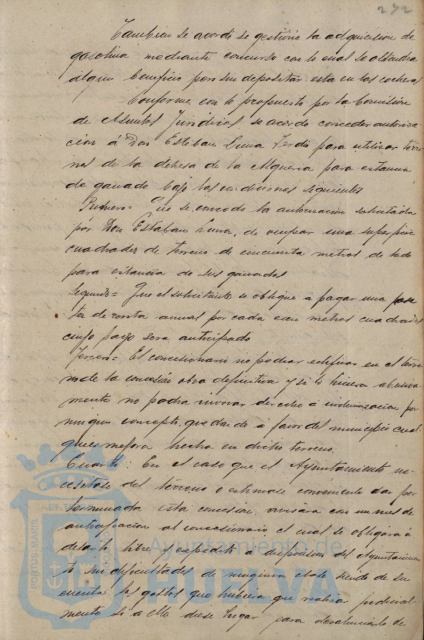 272
Tambien se acordó se gestione la adquisicion de
gasolina mediante concurso con lo cual se obtendria
algun beneficio por su deposito esta en las cocheras
Conforme con lo propuesto por la Comisión
de Asuntos Juridicos se acordo conceder autoriza-
cion á Don Esteban Luna para utilizar terre
nos de la dehesa de la Alqueria para estancia
de ganado bajo las condiciones siguientes
Primero= Que se concede la autorización solicitada
por Don Esteban Luna, de ocupar una superficie
cuadrada de terreno de cincuenta metros de lado
para estancia de sus ganados
Segundo= Que el solicitante se obligue a pagar una pese
ta de renta anual por cada cien metros cuadrados
cuyo pago sera anticipado
Tercero= El concesionario no podrá edificar en el terre
no de la concesión obra definitiva y si lo hiciera abusiva
mente no podra invocar derecho á indemnizacion por
ningun concepto, quedando a favor del municipio cual
quier mejora hecha en dicho terreno.
Cuarto: En el caso que el Ayuntamiento ne-
cesitase del terreno o estimase conveniente dar por
terminada esta concesion, avisara con un mes de
anticipacion al concesionario el cual se obligará á
dejarlo libre y expedito a disposicion del Ayuntamien
to sin dificultades de ninguna clase siendo de su
cuenta los gastos que hubiera que realizar judicial-
mente si a ello diese lugar para desalojarlo de
Ayuntamiento de
HUELVA